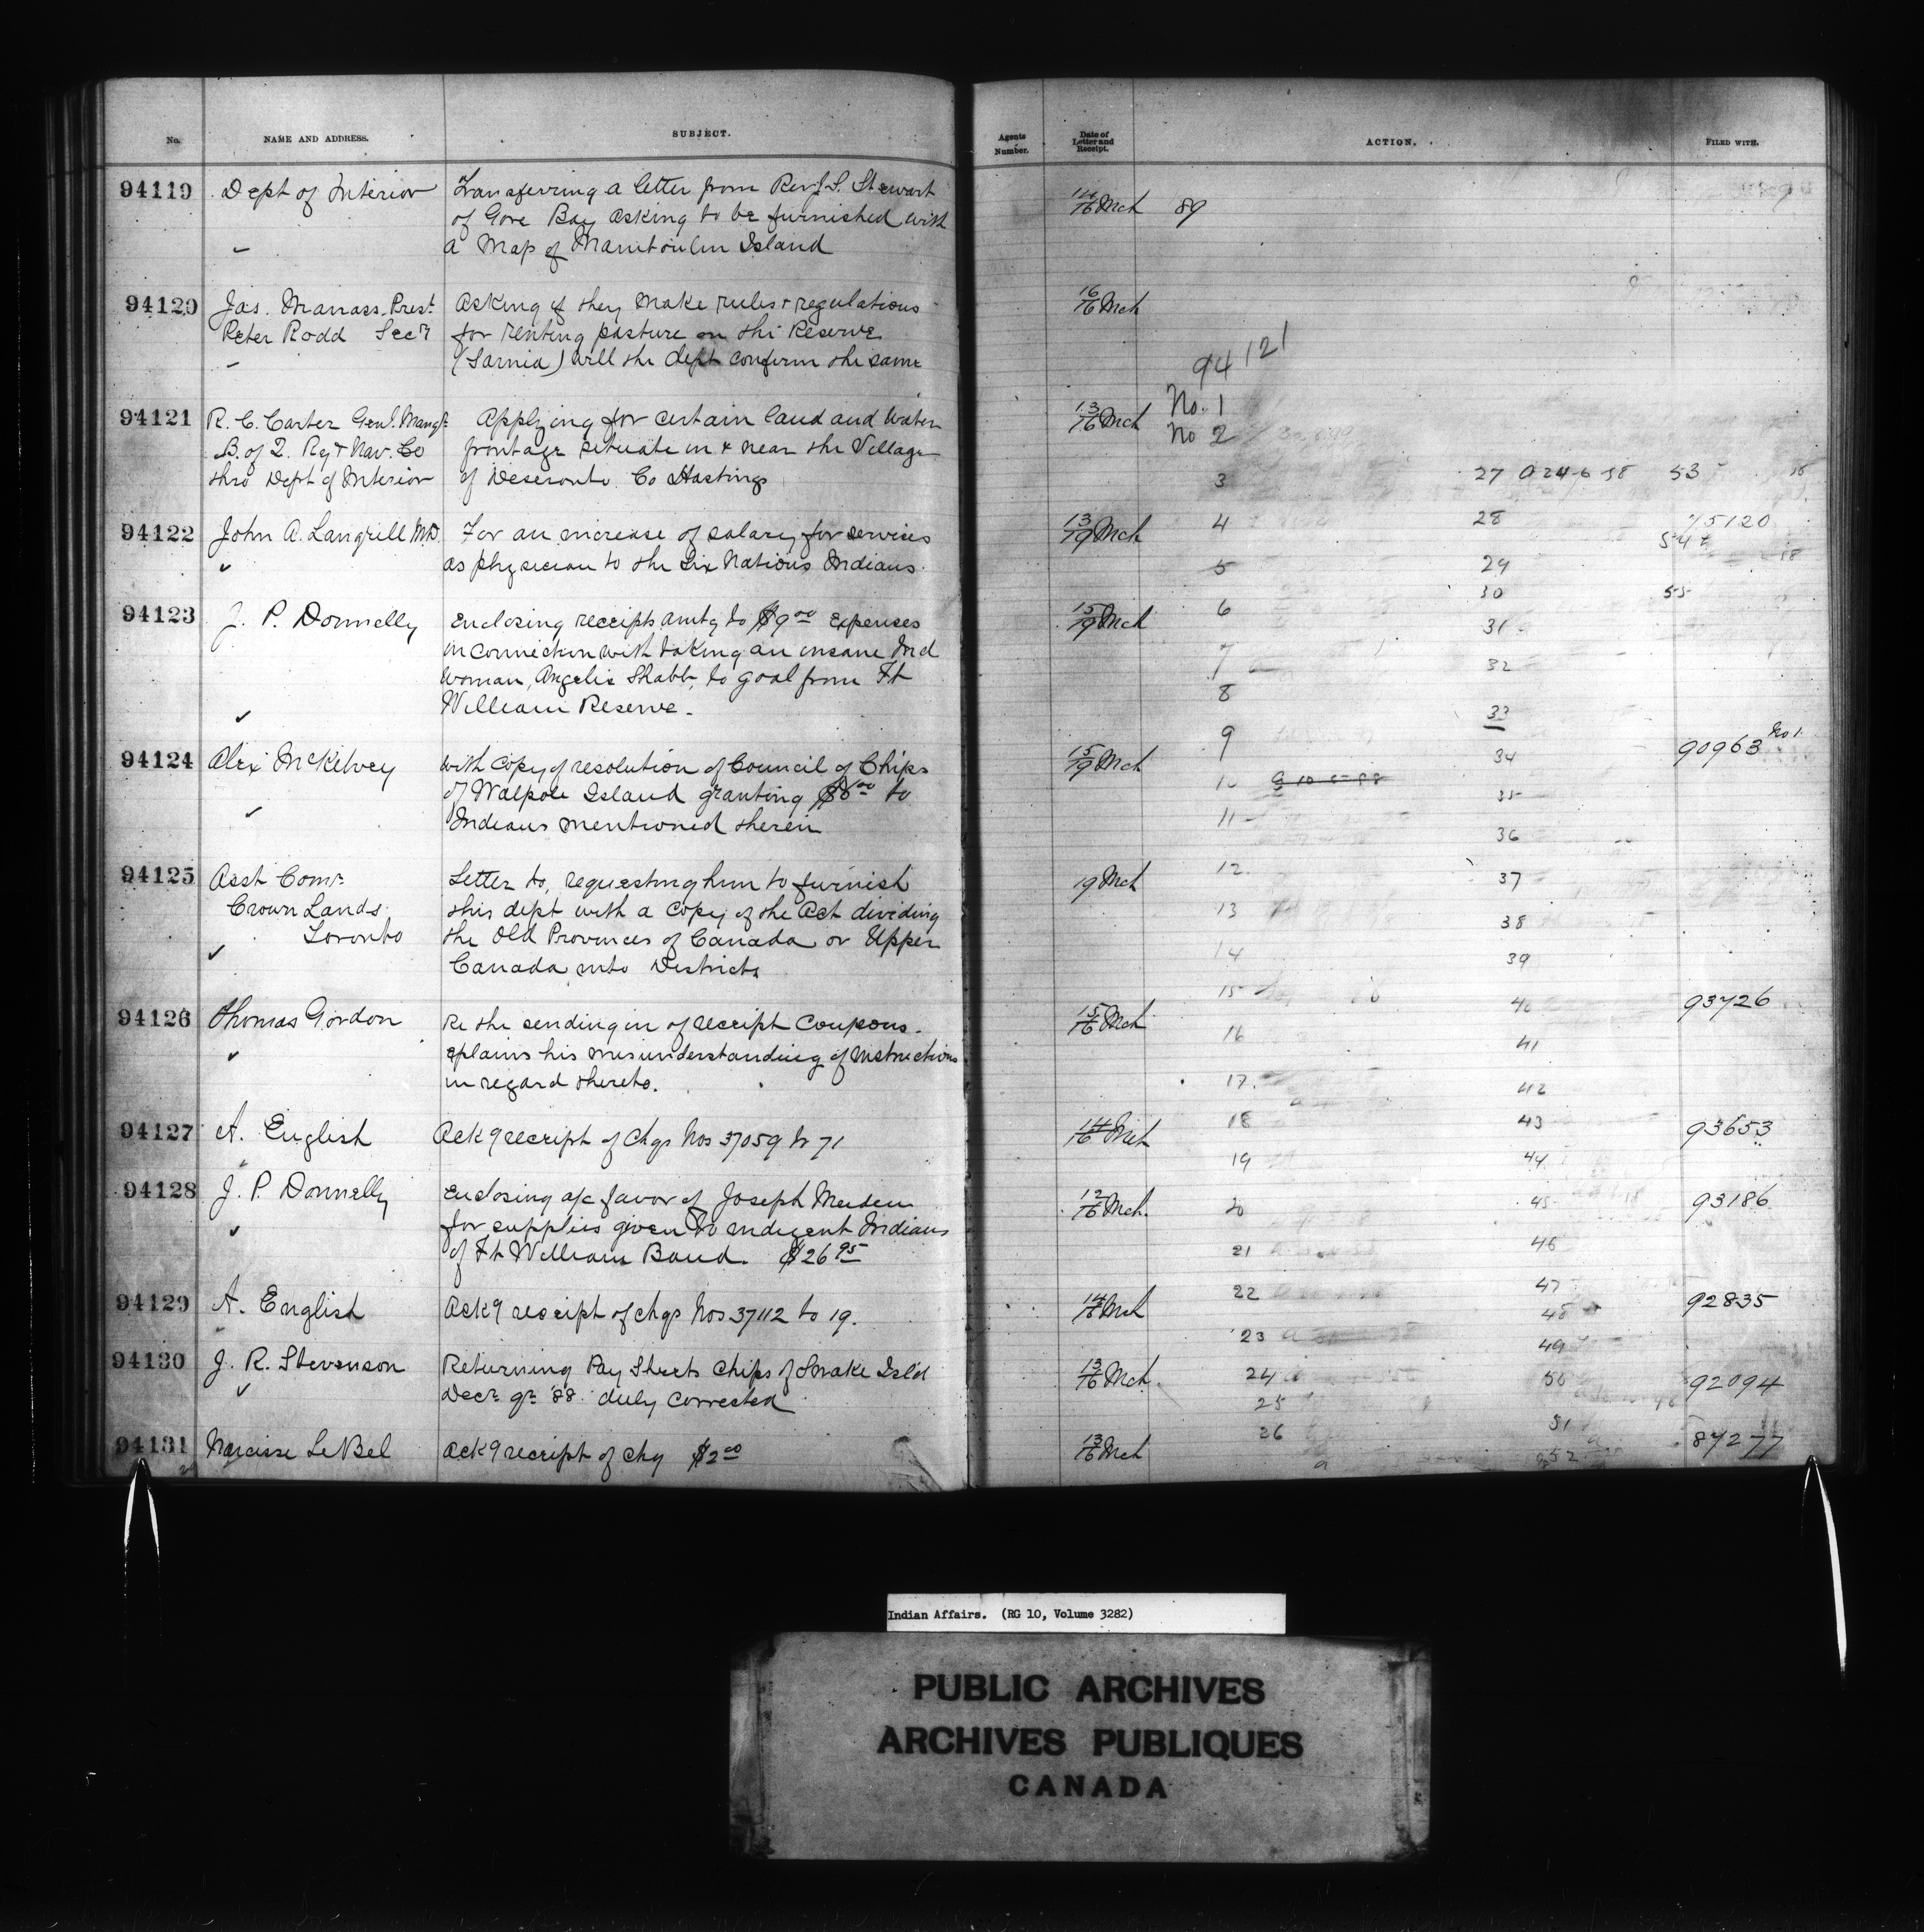 No. NAME AND ADDRESS. SUBJECT.
94119 Dept of Interior Transferring a letter from Rev J. S. Stewart
of Gore Bay asking to be furnished with
a Map of Manitoulin Island
94120 Jas. Manass. Prest. Asking if they make rules + regulations
Peter Rodd Secy for renting pasture on the Reserve
(Sarnia) will the dept confirm the same
94121 R. C. Carter Genl. Mangr Applying for certain land and water
B. of Q. Ry + Nav. Co frontage situate in & near the Village
thro Dept of Interior of Deseronto Co Hastings
94122 John A. Langrill MD. For an increase of salary for services
as physician to the Six Nations Indians.
94123 J. P. Donnelly Enclosing receipts amtg to $9 00 expenses
in connection with taking an insane Ind
woman, Angelic Shabb, to goal from Ft
William Reserve.
94124 Alex McKelvey with copy of resolution of Council of Chips
of Walpole Island granting $6 00 to
Indians mentioned therein
94125 Asst Comr. Letter to, requesting him to furnish
Crown Lands this dept with a copy of the Act dividing
Toronto the Old Provinces of Canada or Upper
Canada into Districts
94126 Thomas Gordon Re the sending in of receipt coupons.
eplains his misunderstanding of instructions
in regard thereto.
94127 A. English Ackg receipt of chqs Nos 37059 to 71
94128 J. P. Donnelly Enclosing a/c favor of Joseph
for supplies given to indigent Indians
of Ft William Band. $26 95
94129 A. English Ackg receipt of chqs Nos 37112 to 19.
94130 J. R. Stevenson Returning Pay Sheets Chips of Snake Isl'd
Decr qr '88 duly corrected
94131 Narcisse LeBel Ackg receipt of chq $2 00
Agents Number. Date of Letter and Receipt. ACTION. FILED WITH.
14/16 Mch 89
16/16 Mch
94121
13/16 Mch No. 1
No 2
3 27 53
13/19 Mch 4 28 75120
54
5 29
30 55
15/19 Mch 6
31
7 32
8
33
9
15/19 Mch 34 90963 No 1
10
35
11
36
19 Mch 12. 37
13 38
14 39
15 40 93726
15/16 Mch 16 41
17. 42
14/16 Mch 18 43 93653
19 44
12/16 Mch. 20 45 93186
21 46
22 47
14/16 Mch 48 92835
23 49
13/16 Mch. 24 50 92094
25
26 51
13/16 Mch 52 87277
Indian Affairs. (RG 10, Volume 3282)
PUBLIC ARCHIVES
ARCHIVES PUBLIQUES
CANADA